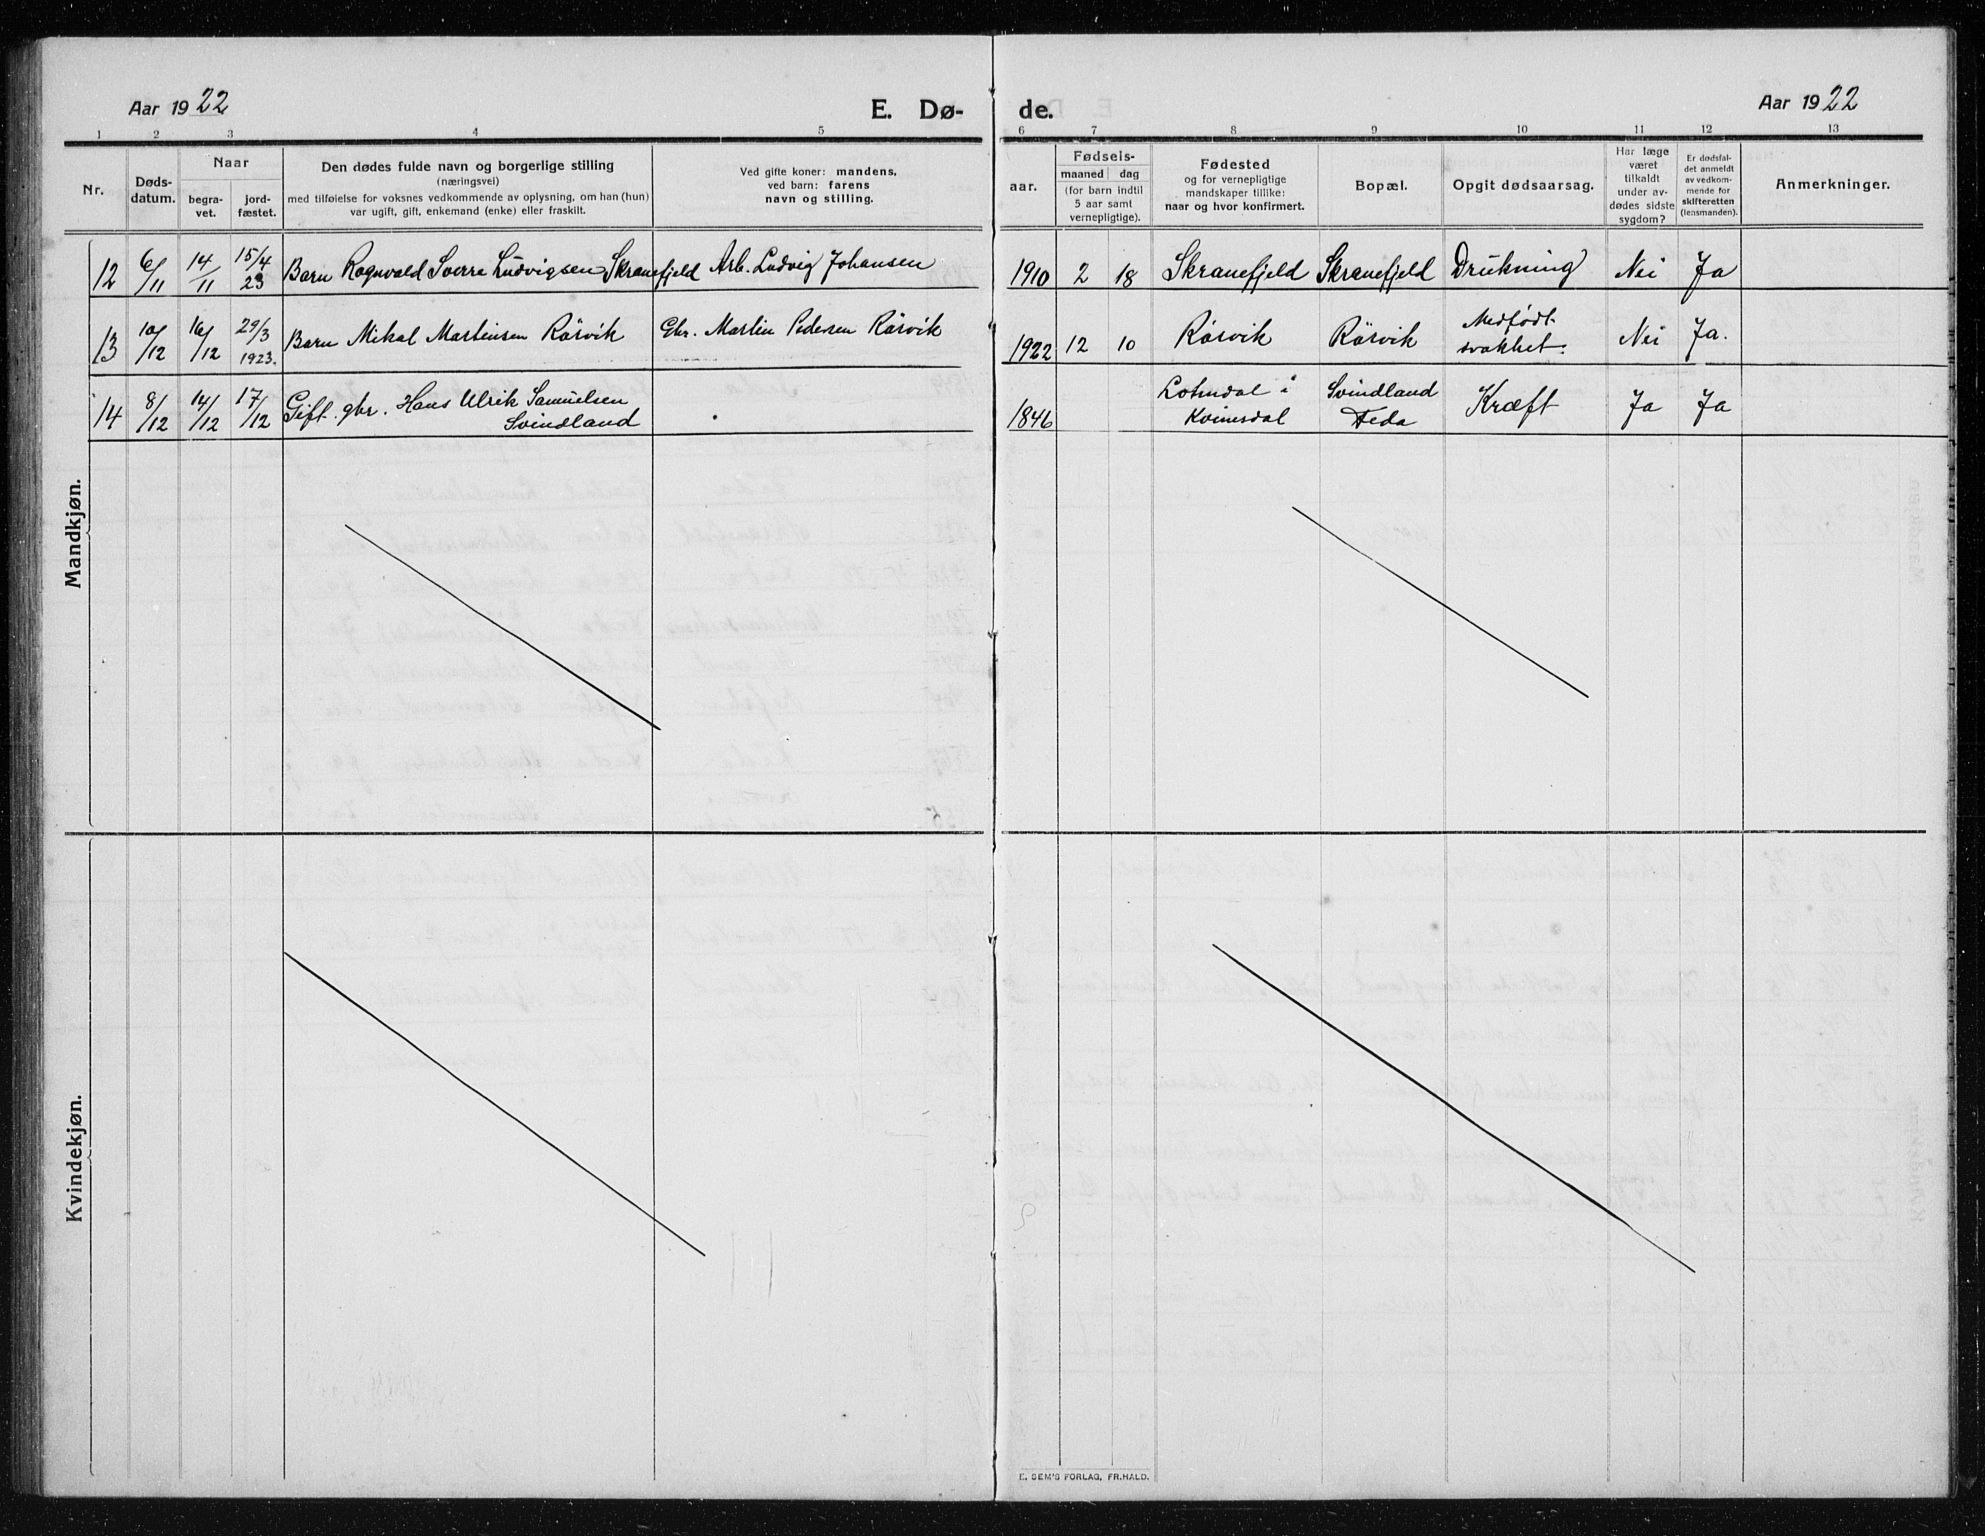 Aar 1922
E. Dø-
de.
Aar 1922
1 2 3 4 5 6 7 8 9 10 11 12 13
Nr.
Døds-
datum.
Naar
begra-
vet.
jord-
fæstet.
Den dødes fulde navn og borgerlige stilling
(næringsvei)
med tilføielse for voksnes vedkommende av oplysning, om han (hun)
var ugift, gift, enkemand (enke) eller fraskilt.
Ved gifte koner: mandens,
ved barn: farens
navn og stilling.
aar.
Fødsels-
maaned dag
(for barn indtil
5 aar samt
vernepligtige).
Fødested
og for vernepligtige
mandskaper tillike:
naar og hvor konfirmert.
Bopæl.
Opgit dødsaarsag.
Har læge
været
tilkaldt
under av-
dødes sidste
sygdom?
Er dødsfal-
det anmeldt
av vedkom-
mende for
skifteretten
(lensmanden).
Anmerkninger.
Mandkjøn.
12 6/11 14/11 15/4 23 Barn Rognvald Sverre Ludvigsen Skranefjeld Arb. Ludvig Johansen 1910 2 18 Skranefjeld Skranefjeld Drukning Nei Ja
13 10/12 16/12 29/3 1923. Barn Mikal Martinsen Rörvik Gbr. Martin Pedersen Rörvik 1922 12 10 Rörvik Rörvik Medfödt svakhet. Nei Ja.
14 8/12 14/12 17/12 Gift. gbr. Hans Ulrik Samuelsen Svindland 1846 Lohndal i Kvinesdal Svindland Feda Kræft Ja Ja
Kvindekjøn.
E. SEM'S FORLAG, FR.HALD.